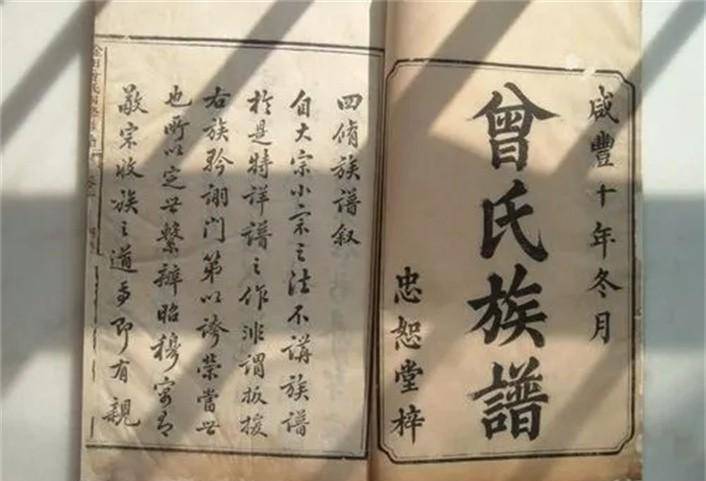 咸豐十年冬月
曾氏族譜
忠恕堂梓
四修族譜叙
自大宗小宗之法不講族譜
於是特詳譜之作非謂扳援
右族矜詡門第以誇榮當世
也所以定世繫辨昭穆寓
敬宗收族之道焉即有親